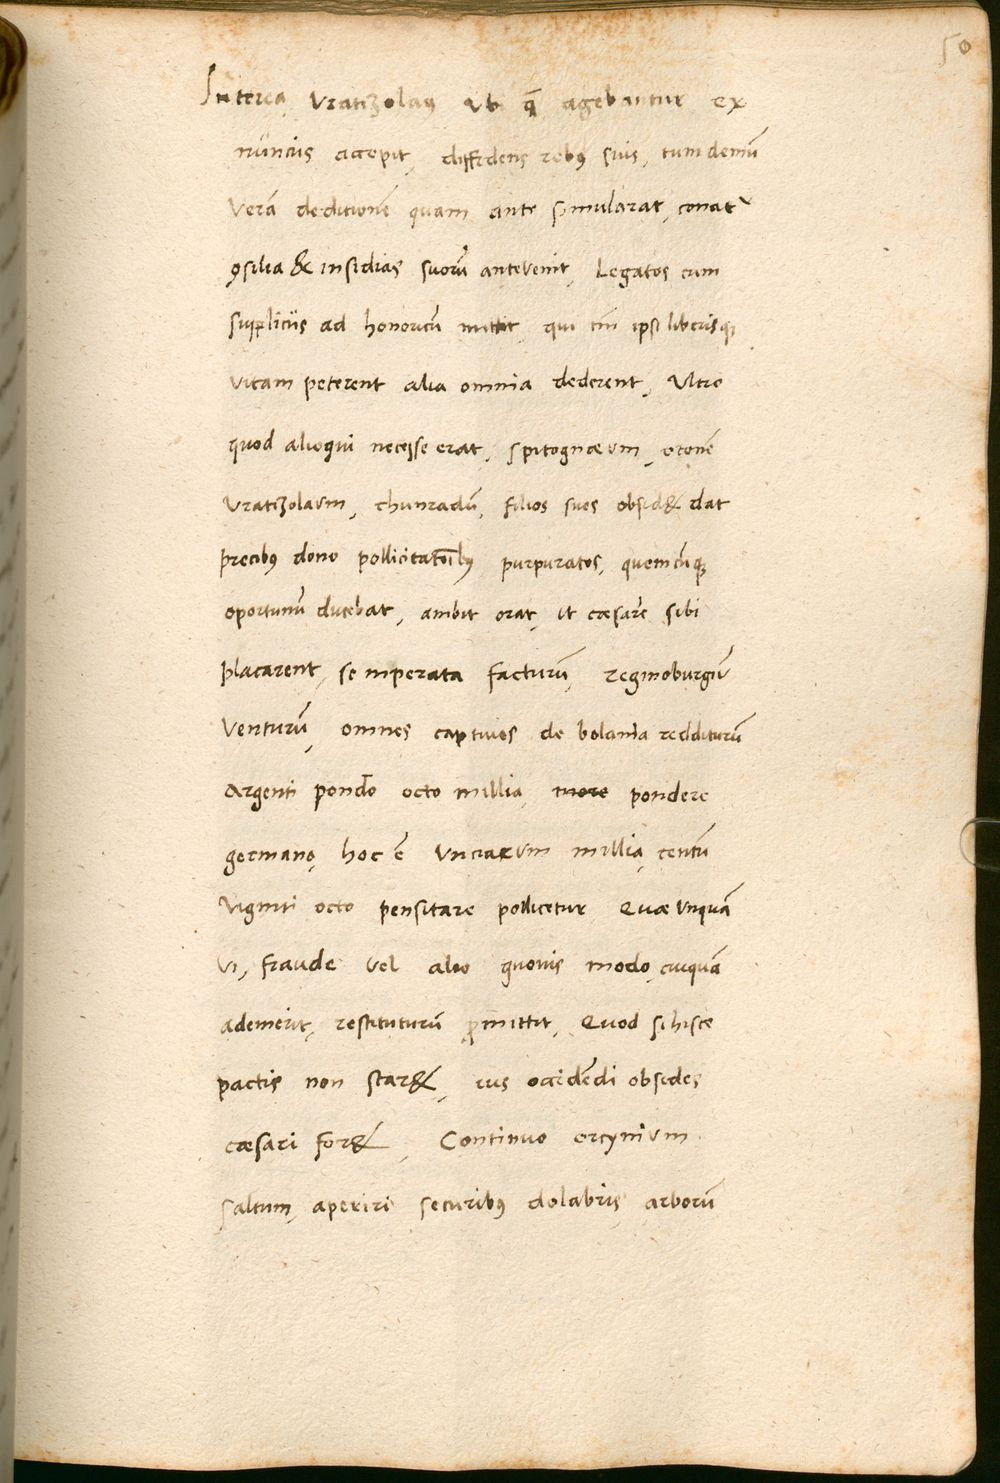 50
Interea, Vratizolaus Vb q̄ agebantur ex
nūnciis accepit, diffidens rebꝰ suis, tum demū
Verā deditionē quam ante simularat, conatꝰ
ꝯsilia & insidias suorū antevenit, Legatos cum
supꝑliciis ad honoricū mittit, qui tm̄ ipsi liberisqꝫ
vitam peterent alia omnia dederent, Vltro
quod alioqui necesse erat, spitognæum, otonē
Vratizolaum, chunradū, filios suos obsid& dat
precibꝰ dono pollicitatōibꝰ purpuratos, quemcūqꝫ
oportunū ducebat, ambit orat, ut cæsarē sibi
placarent, se imperata facturū, reginoburgiū
Venturū, omnes captivos de bolania redditurū
Argenti pondō octo millia, more pondere
germano, hoc ē Vnciarum millia, centū
Viginti octo pensitare pollicetur Quæ Vnquā
Vi, fraude vel alio quovis modo, cuiquā
ademerit, restituturū ꝓmittit, Quod si hisce
pactis non star&, ius occidēdi obsides
cæsari for&, Continuo ercynium
saltum, aperiri securibꝰ dolabris, arborū